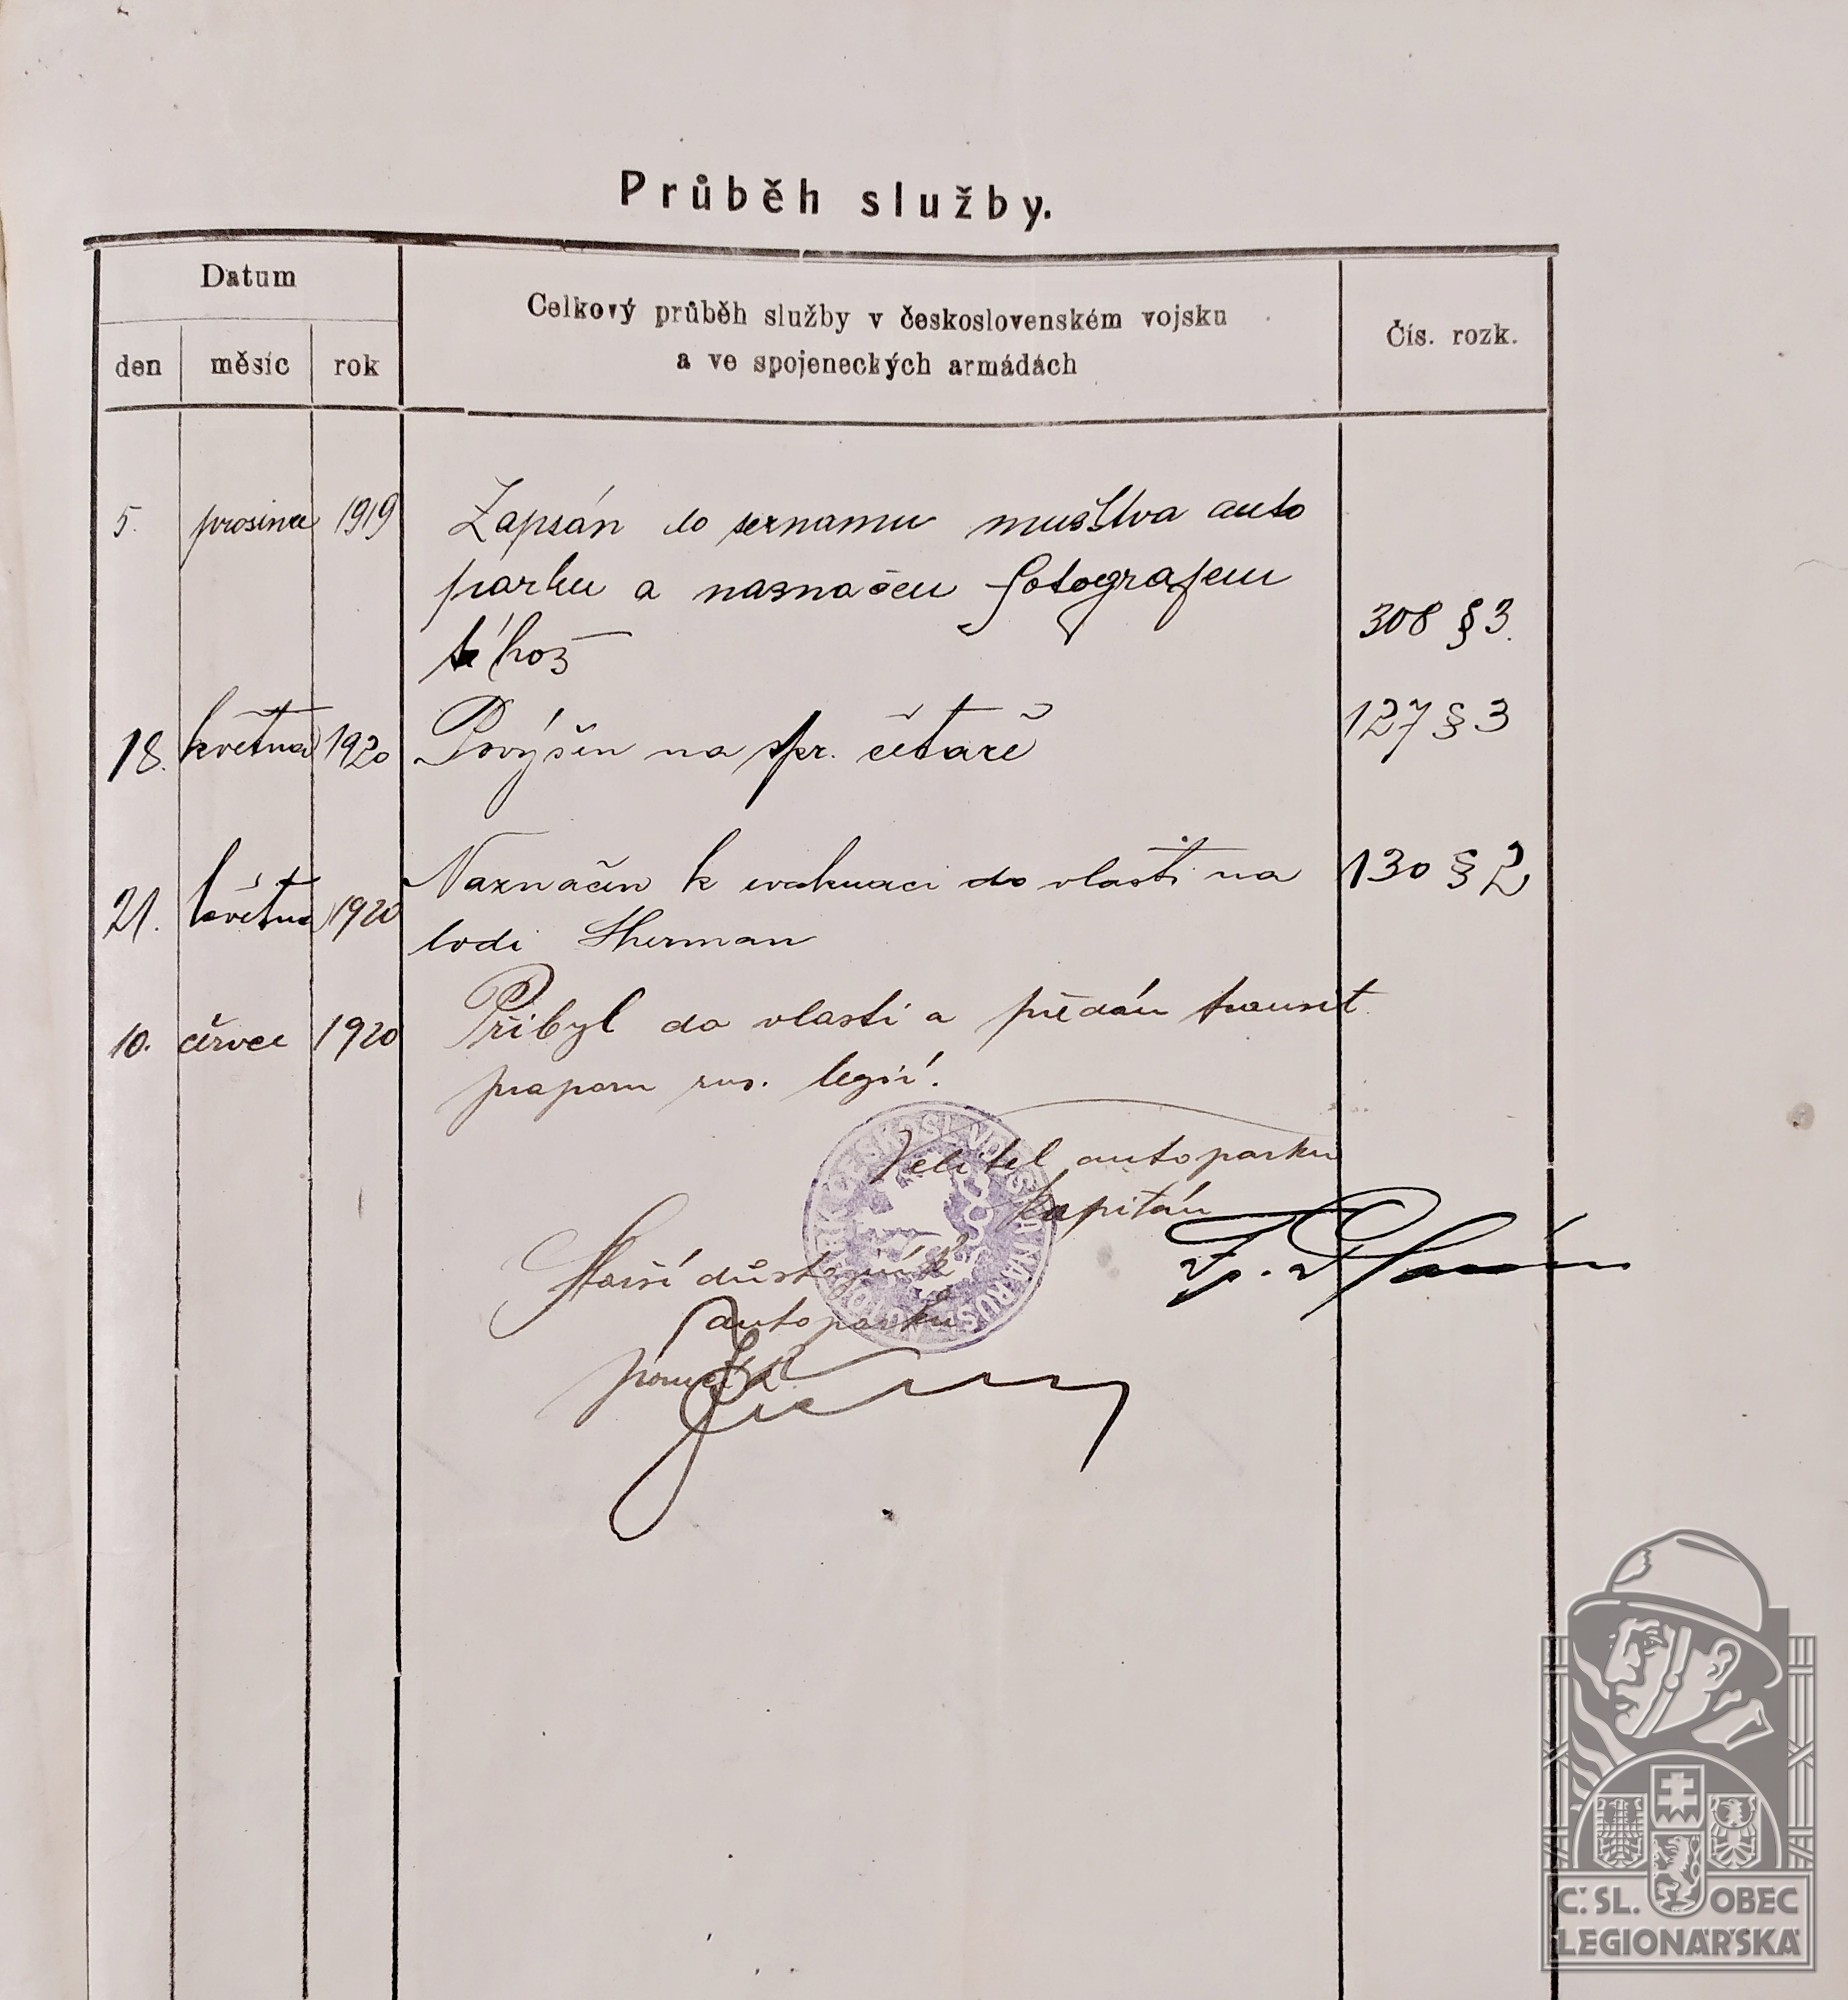 Průběh služby.
Datum
Celkový průběh služby v československém vojsku
a ve spojeneckých armádách
Čís. rozk.
den měsíc rok
5. prosince 1919 Zapsán do seznamu mužstva auto
parku a naznačen fotografem
téhož 308 § 3.
18. května 1920 Povýšen na četaře 127 § 3
21. května 1920 Naznačen k evakuaci do vlasti na 130 § 2
lodi Sherman
10. červce 1920 Přibyl do vlasti a předán transit.
praporu rus. legií.
Velitel autoparku
kapitán
Starší důstojník
autoparku
Č. SL. OBEC
LEGIONÁŘSKÁ